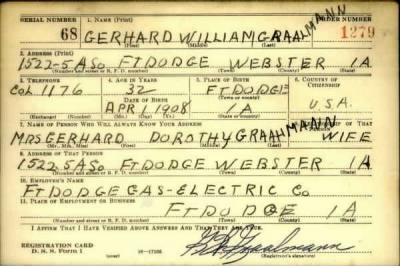 SERIAL NUMBER 1. NAME (Print) ORDER NUMBER
68 GERHARD WILLIAM GRAALMANN 1279
(First) (Middle) (Last)
2. ADDRESS (Print)
1522-5 A SO FT DODGE WEBSTER IA
(Number and street or R. F. D. number) (Town) (County) (State)
3. TELEPHONE 4. AGE IN YEARS 5. PLACE OF BIRTH 6. COUNTRY OF CITIZENSHIP
COL 1176 32 FT DODGE
DATE OF BIRTH (Town or county)
APR 1 1908 IA U.S.A.
(Exchange) (Number) (Mo.) (Day) (Yr.) (State or country)
7. NAME OF PERSON WHO WILL ALWAYS KNOW YOUR ADDRESS
MRS GERHARD DOROTHY GRAALMANN WIFE
(Mr., Mrs., Miss) (First) (Middle) (Last)
8. ADDRESS OF THAT PERSON
1522 5 A SO FT DODGE WEBSTER IA
(Number and street or R. F. D. number) (Town) (County) (State)
9. EMPLOYER'S NAME
FT DODGE GAS-ELECTRIC Co
10. PLACE OF EMPLOYMENT OR BUSINESS
FT DODGE IA
(Number and street or R. F. D. number) (Town) (County) (State)
I AFFIRM THAT I HAVE VERIFIED ABOVE ANSWERS AND THAT THEY ARE TRUE.
REGISTRATION CARD
D. S. S. Form 1
Graalmann
(Registrant's signature)